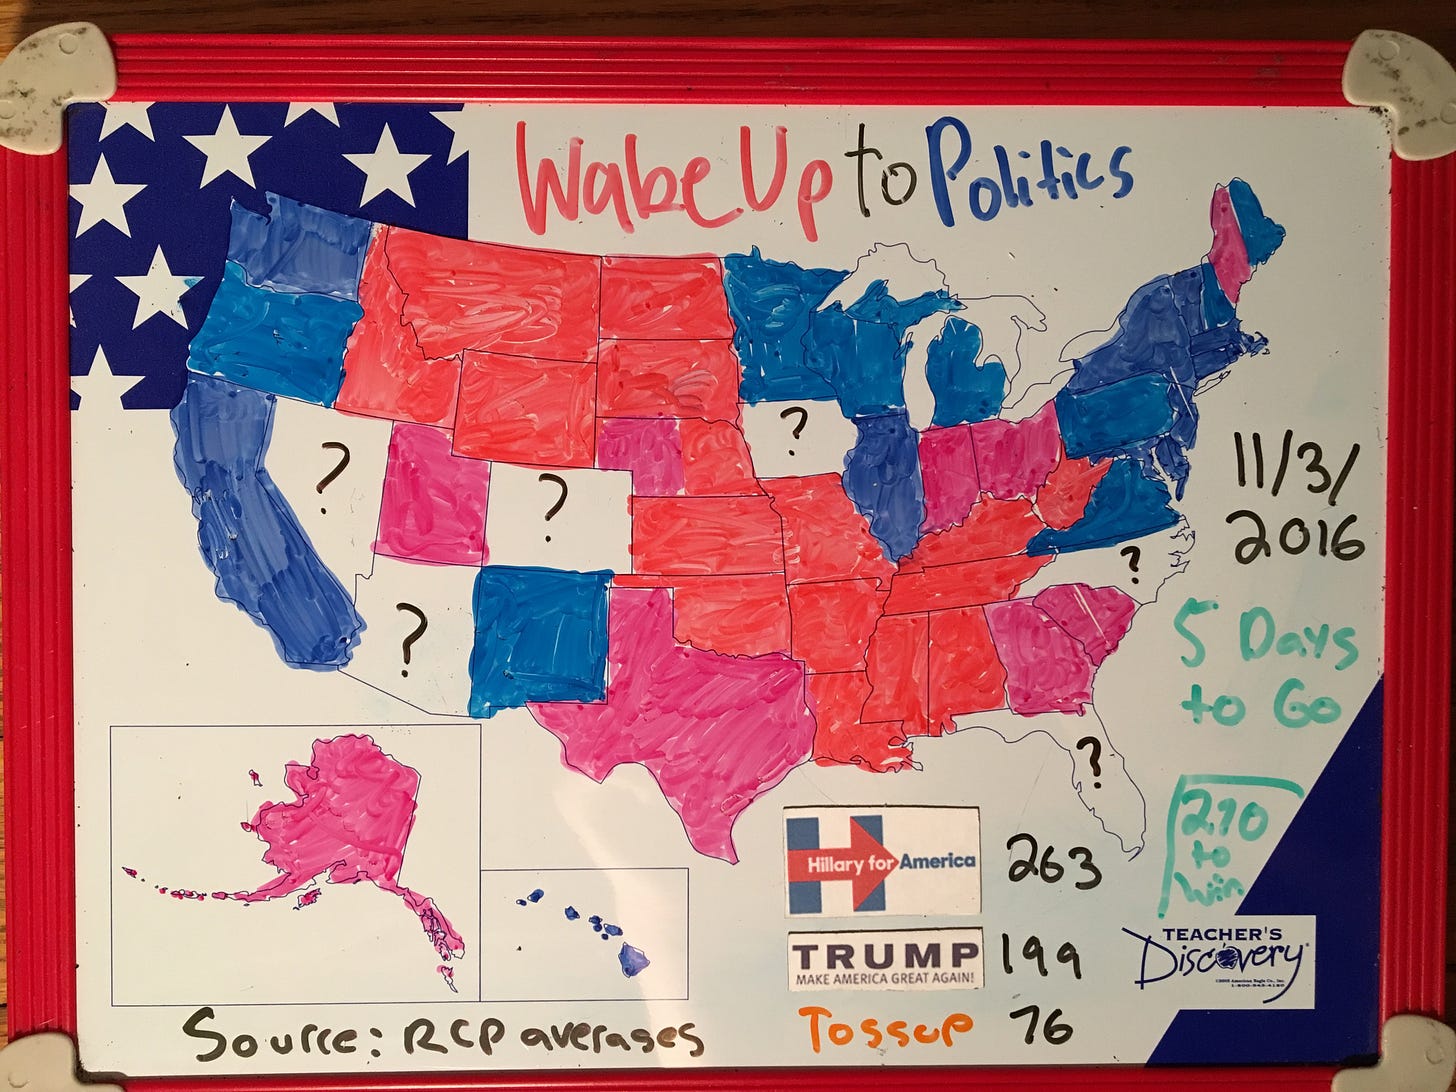 Wake Up to Politics
?
?
?
?
?
?
11/3/
2016
5 Days
to Go
270
to
Win
H
Hillary for America
263
TRUMP
MAKE AMERICA GREAT AGAIN!
199
Tossup 76
TEACHER'S
Discovery
Source: RCP averages